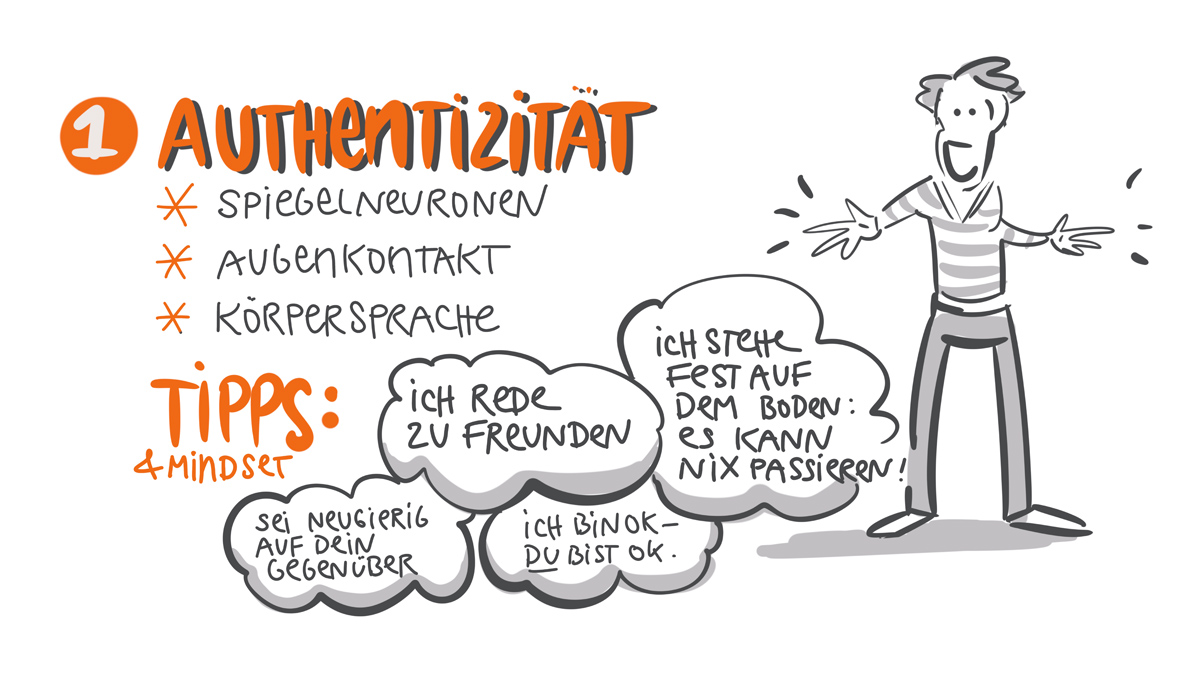 1 AUTHENTIZITÄT
* SPIEGELNEURONEN
* AUGENKONTAKT
* KÖRPERSPRACHE
TIPPS:
& MINDSET
ICH REDE
ZU FREUNDEN
ICH STEHE
FEST AUF
DEM BODEN:
ES KANN
NIX PASSIEREN!
SEI NEUGIERIG
AUF DEIN
GEGENÜBER
ICH BIN OK –
DU BIST OK.